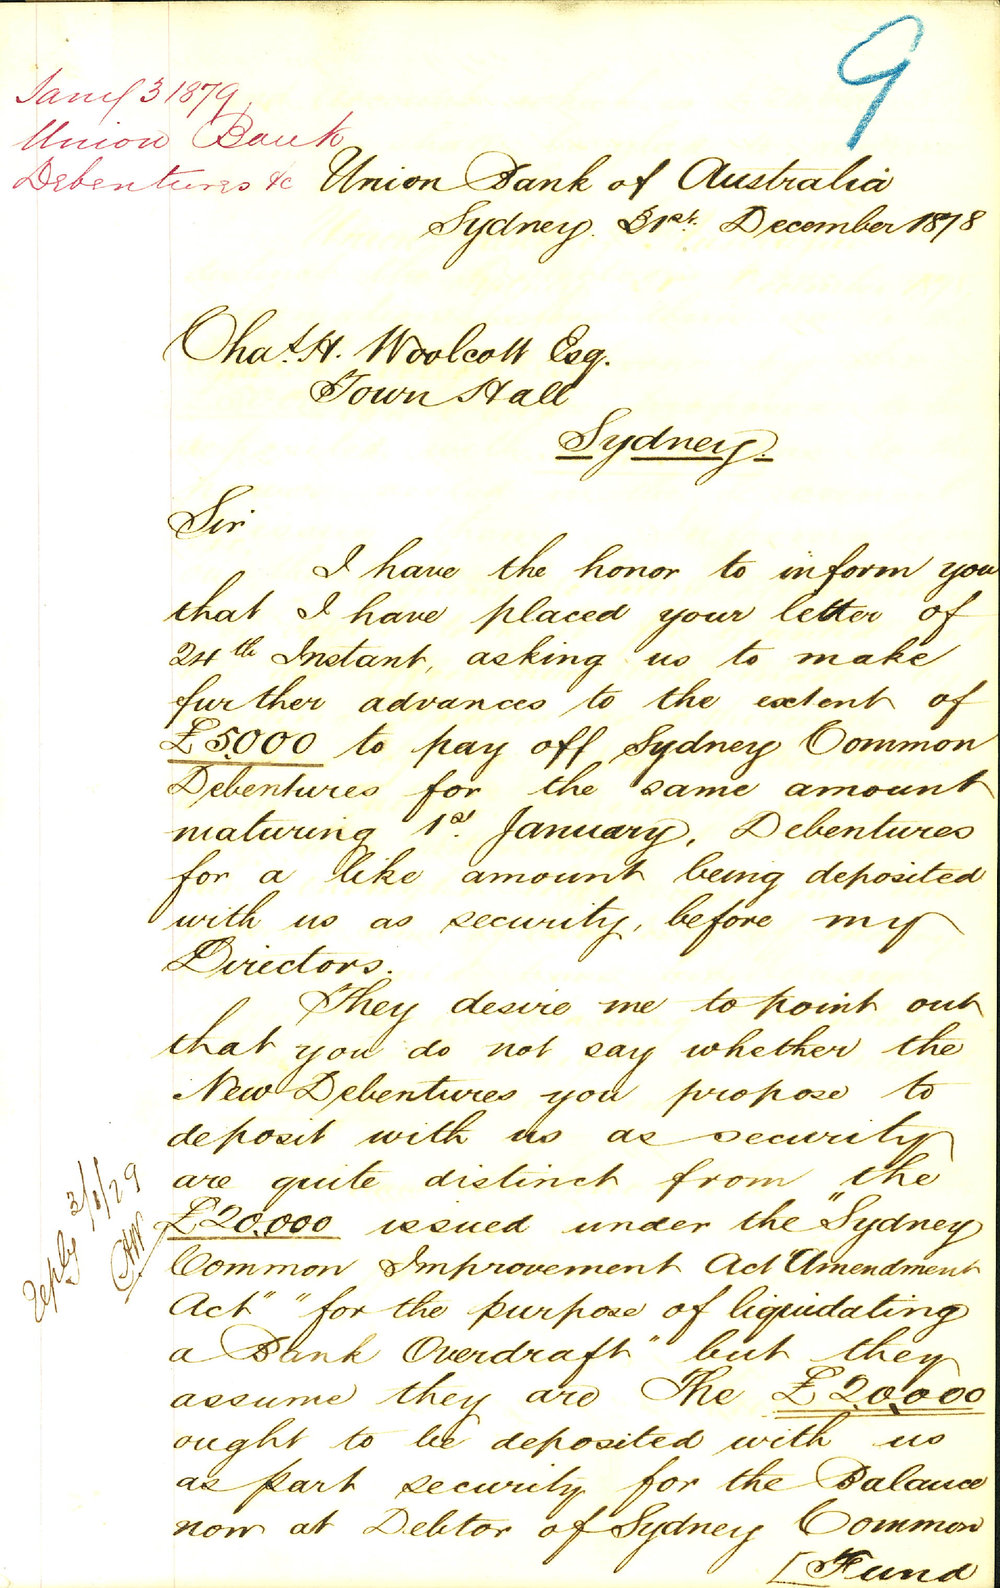 9
Jany 3 1879
Union Bank
Debentures &c
Union Bank of Australia
Sydney. 31st. December 1878
Chas. H. Woolcott Esq.
Town Hall
Sydney.
Sir
I have the honor to inform you
that I have placed your letter of
24th Instant, asking us to make
further advances to the extent of
£5000 to pay off Sydney Common
Debentures for the same amount
maturing 1st. January, Debentures
for a like amount being deposited
with us as security, before my
Directors.
They desire me to point out
that you do not say whether the
New Debentures you propose to
deposit with us as security
are quite distinct from the
£20,000 issued under the "Sydney
Common Improvement Act Amendment
Act" "for the purpose of liquidating
a Bank Overdraft" but they
assume they are The £20,000
ought to be deposited with us
as part security for the Balance
now at Debtor of Sydney Common
[Fund
reply 3/1/79
CHW